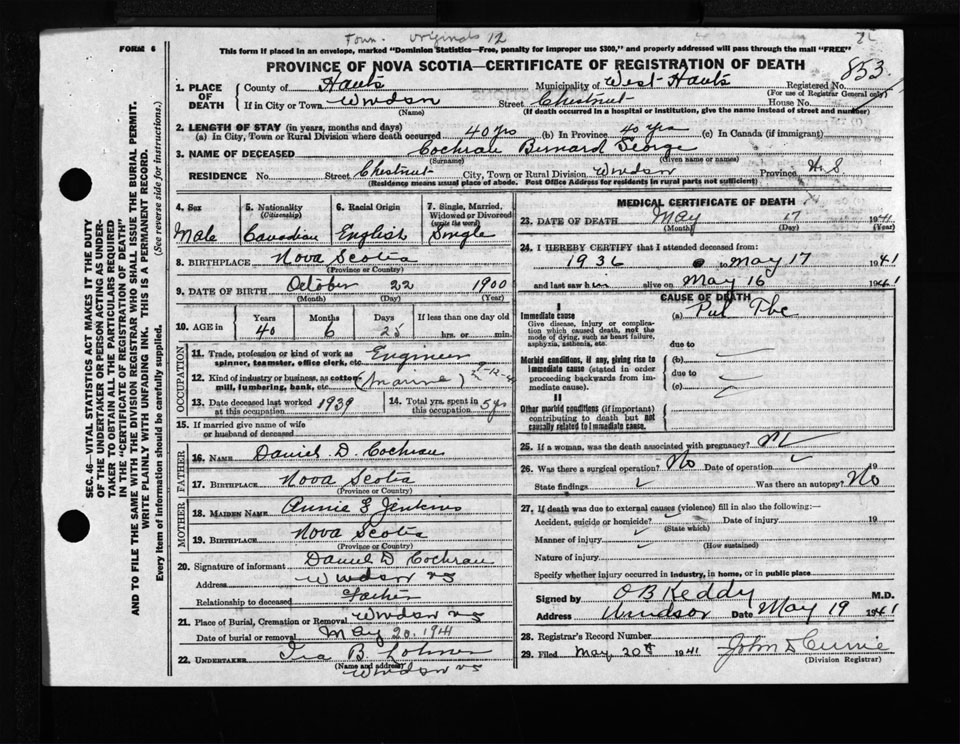 Originals 12
FORM 6
This form if placed in an envelope, marked "Dominion Statistics—Free, penalty for improper use $300," and properly addressed will pass through the mail "FREE"
PROVINCE OF NOVA SCOTIA—CERTIFICATE OF REGISTRATION OF DEATH
853
1. PLACE OF DEATH
County of Hants Municipality of West Hants Registered No.
(For use of Registrar General only)
If in City or Town Windsor Street Chestnut House No.
(Name) (If death occurred in a hospital or institution, give the name instead of street and number)
2. LENGTH OF STAY (in years, months and days)
(a) In City, Town or Rural Division where death occurred 40 yrs (b) In Province 40 yrs (c) In Canada (if immigrant)
3. NAME OF DECEASED Cochran Bernard George
(Surname) (Given name or names)
RESIDENCE No. Street Chestnut City, Town or Rural Division Windsor Province N.S.
(Residence means usual place of abode. Post Office Address for residents in rural parts not sufficient)
4. Sex Male
5. Nationality (Citizenship) Canadian
6. Racial Origin English
7. Single, Married, Widowed or Divorced (write the word) Single
8. BIRTHPLACE Nova Scotia
(Province or Country)
9. DATE OF BIRTH October 22 1900
(Month) (Day) (Year)
10. AGE in Years Months Days If less than one day
40 6 25 hrs. or min.
OCCUPATION
11. Trade, profession or kind of work as spinner, teamster, office clerk, etc. Engineer
12. Kind of industry or business, as cotton-mill, lumbering, bank, etc. (Marine)
13. Date deceased last worked at this occupation 1939
14. Total yrs. spent in this occupation 5 yrs
15. If married give name of wife or husband of deceased
FATHER
16. NAME Daniel D. Cochran
17. BIRTHPLACE Nova Scotia
(Province or Country)
MOTHER
18. MAIDEN NAME Annie G Jenkins
19. BIRTHPLACE Nova Scotia
(Province or Country)
20. Signature of informant Daniel D Cochran
Address Windsor NS
Relationship to deceased Father
21. Place of Burial, Cremation or Removal Windsor NS
Date of burial or removal May 20. 1941
22. UNDERTAKER Ira B.
(Name and address)
Windsor NS
MEDICAL CERTIFICATE OF DEATH
23. DATE OF DEATH May 17 1941
(Month) (Day) (Year)
24. I HEREBY CERTIFY that I attended deceased from:
1936 to May 17 1941
and last saw him alive on May 16 1941
CAUSE OF DEATH
I
Immediate cause (a) Pul Tbc
Give disease, injury or complication which caused death, not the mode of dying, such as heart failure, asphyxia, asthenia, etc.
due to
Morbid conditions, if any, giving rise to immediate cause (stated in order proceeding backwards from immediate cause).
(b)
due to
(c)
II
Other morbid conditions (if important) contributing to death but not causally related to immediate cause.
25. If a woman, was the death associated with pregnancy?
26. Was there a surgical operation? No Date of operation 19
State findings Was there an autopsy? No
27. If death was due to external causes (violence) fill in also the following:—
Accident, suicide or homicide? Date of injury 19
(State which)
Manner of injury
(How sustained)
Nature of injury
Specify whether injury occurred in industry, in home, or in public place
Signed by O B Keddy M.D.
Address Windsor Date May 19 1941
28. Registrar's Record Number
29. Filed May 20th 1941 John D Currie
(Division Registrar)
SEC. 46—VITAL STATISTICS ACT MAKES IT THE DUTY
OF THE UNDERTAKER OR PERSON ACTING AS UNDER-
TAKER TO OBTAIN ALL THE PARTICULARS REQUIRED
IN THE "CERTIFICATE OF REGISTRATION OF DEATH"
AND TO FILE THE SAME WITH THE DIVISION REGISTRAR WHO SHALL ISSUE THE BURIAL PERMIT.
WRITE PLAINLY WITH UNFADING INK. THIS IS A PERMANENT RECORD.
Every item of information should be carefully supplied. (See reverse side for instructions.)